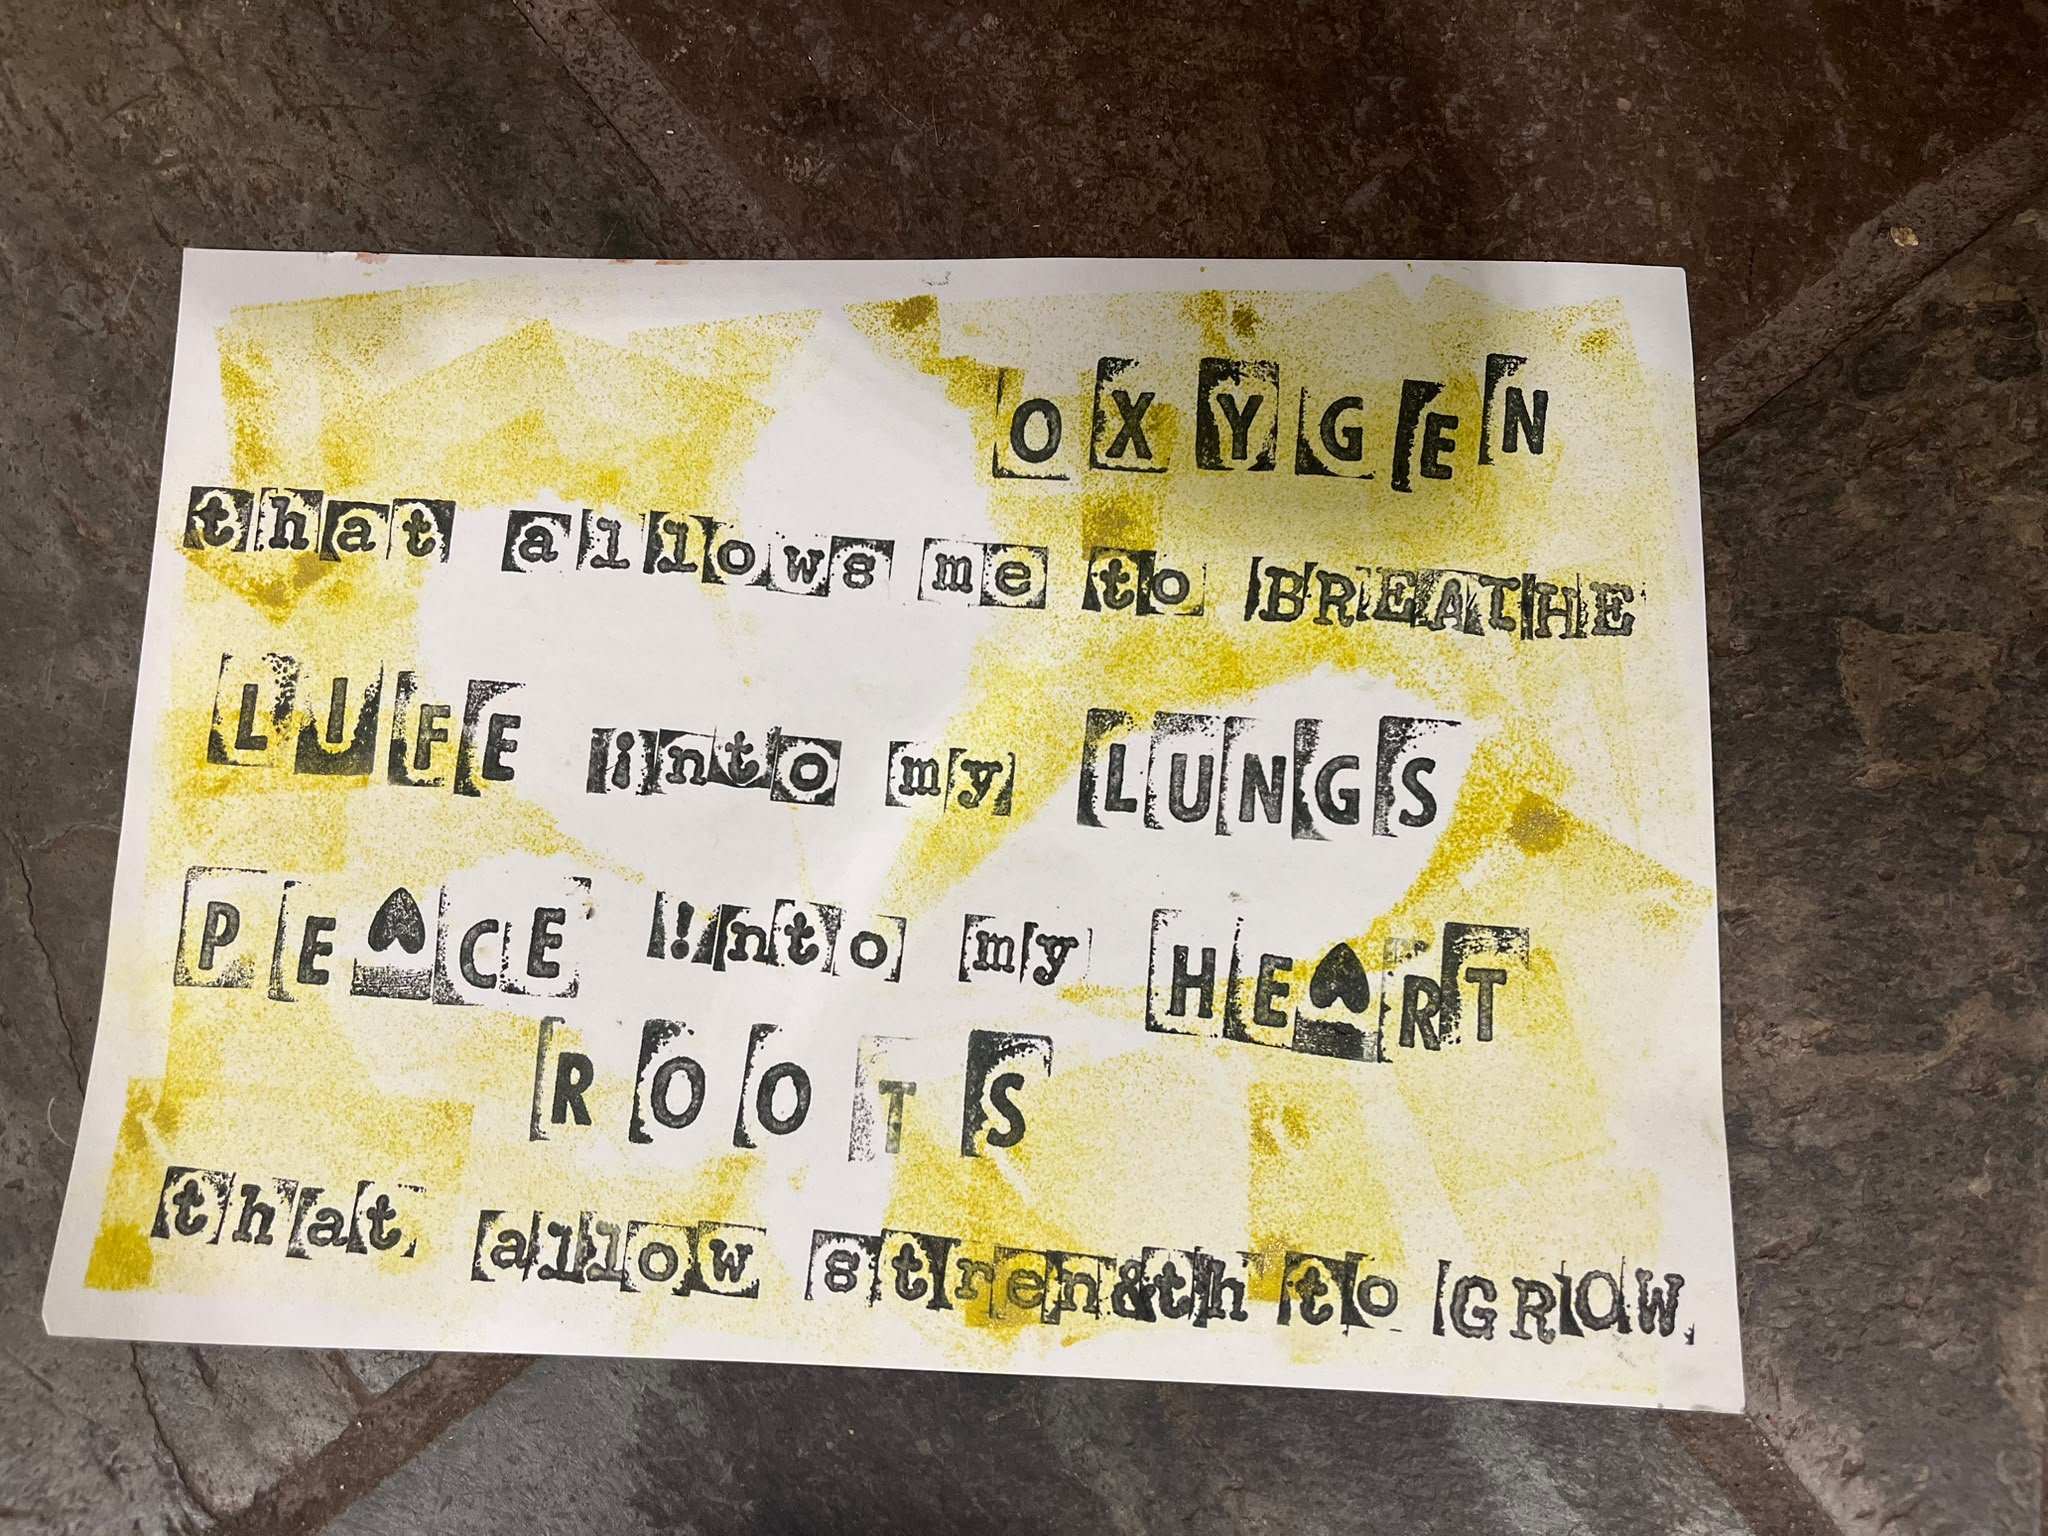 OXYGEN
that allows me to BREATHE
LIFE into my LUNGS
PE♥CE !nto my HE♥RT
ROOTS
that allow stren&th to GROW